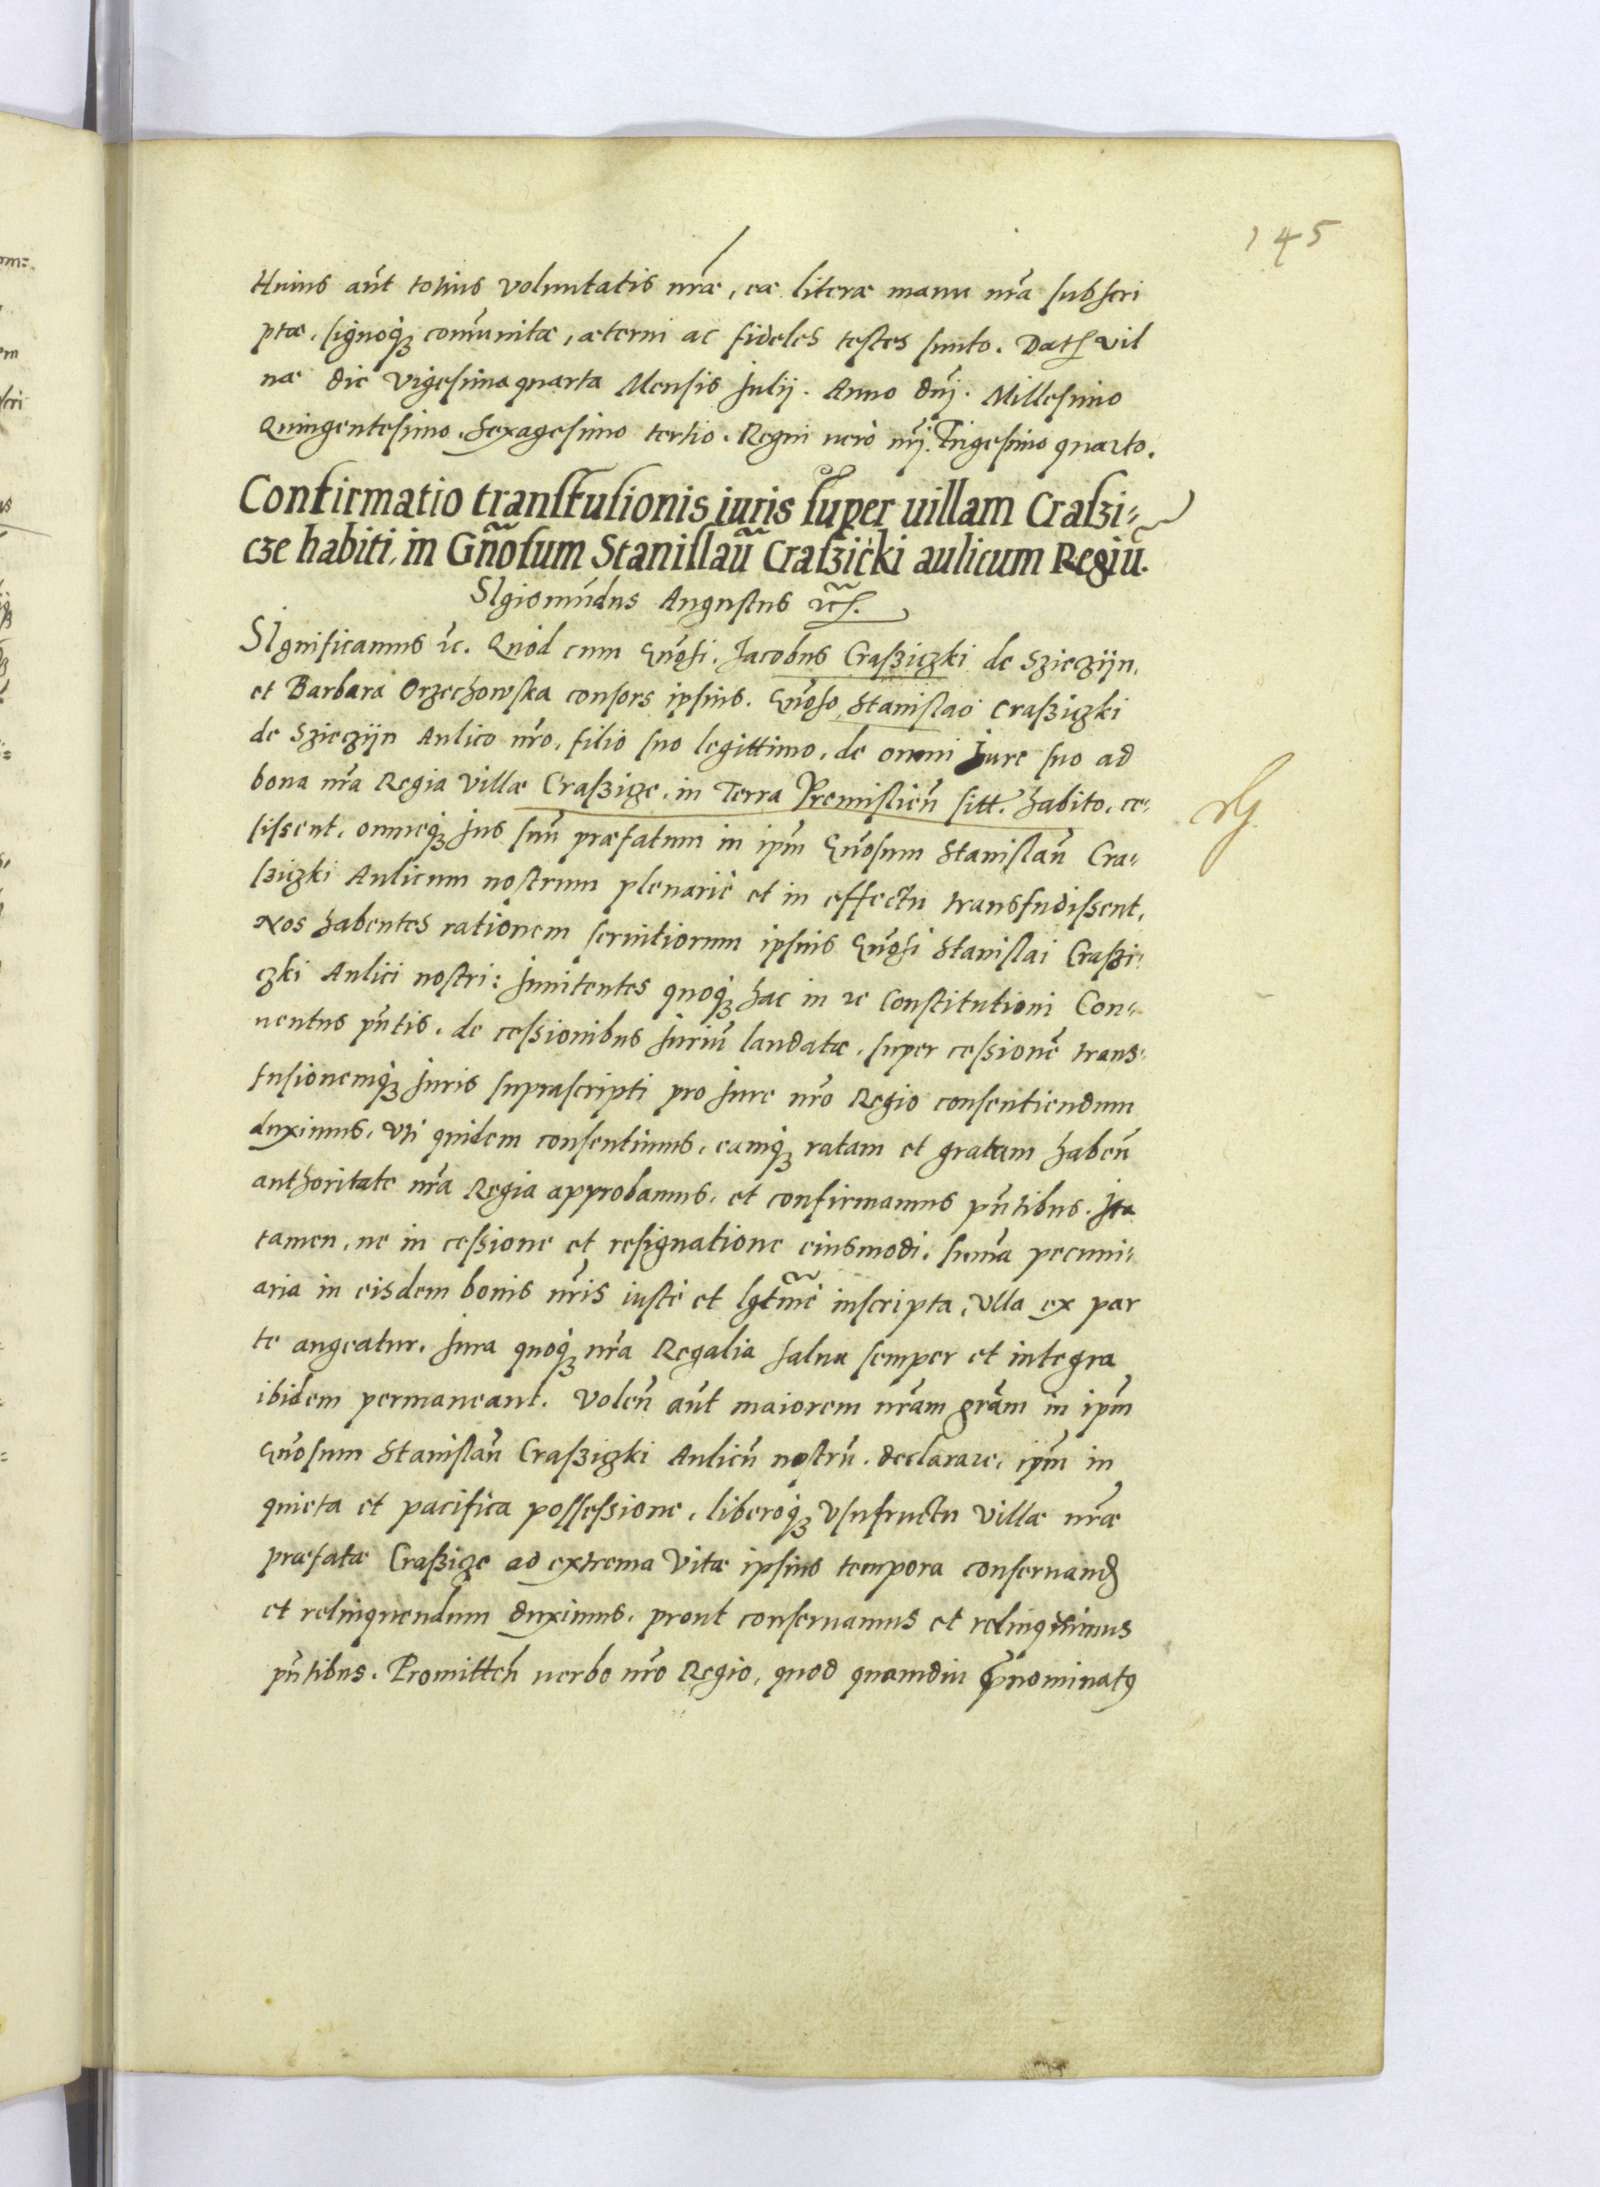 145
Huius aūt totius voluntatis nr̄æ, eæ literæ manu nr̄a subscri
ptæ, signoq̧ com̄unitæ, æterni ac fideles testes sunto. Dat. Vil
næ die vigesima quarta Mensis Julij. Anno dn̄j. Millesimo
Quingentesimo. Sexagesimo tertio. Regni uerò nr̄j. Trigesimo quarto.
Confirmatio transfusionis iuris super uillam Crasʒi=
cʒe habiti, in Gn̄osum Stanislaū Crasʒicki aulicum Regiū.
SIgismūdus Augustus ꝛc̄.
SIgnificamus ꝛc. Quòd cum Gn̄osi. Jacobus Craßiczki de Sziecʒijn,
et Barbara Orzechowska consors ipsius. Gn̄oso Stanislao Craßiczki
de Sziecʒijn Aulico nr̄o, filio suo legittimo, de omni Jure suo ad
bona nr̄a Regia Villæ Craßicze, in Terra Premislien̄ sitt. habito, ce=
sissent, omneq̧ Jus suū præfatum in ipm̄ Gn̄osum Stanislaū Cra=
ßiczki Aulicum nostrum plenariè et in effectu transfudissent,
Nos habentes rationem seruitiorum ipsius Gn̄osi Stanislai Craßi=
cʒki Aulici nostri: Innitentes quoq̧ hac in re Constitutioni Con=
uentus pn̄tis, de cessionibus Juriū laudatæ, super cessionē trans=
fusionemq̧ Juris suprascripti pro Jure nr̄o Regio consentiendum
duximus, Vti quidem consentimus, eamq̧ ratam et gratam haben̄
authoritate nr̄a Regia approbamus, et confirmamus pn̄tibus. Ita
tamen, ne in cessione et resignatione eiusmodi, sum̄a pecuni=
aria in eisdem bonis nr̄is iustè et lgt̄mè inscripta, vlla ex par
te augeatur. Jura quoq̧ nr̄a Regalia salua semper et integra
ibidem permaneant. Volen̄ aūt maiorem nr̄am grām in ipm̄
Gn̄osum Stanislaū Craßiczki Aulicū nostrū declarare, ipm̄ in
quieta et pacifica possessione, liberoq̧ vsufructu Villæ nr̄æ
præfatæ Craßicze ad extrema Vitæ ipsius tempora conseruand
et relinquendum duximus, prout conseruamus et relinquimus
pn̄tibus. Promitten̄ uerbo nr̄o Regio, quod quamdiu p̄nominatꝯ